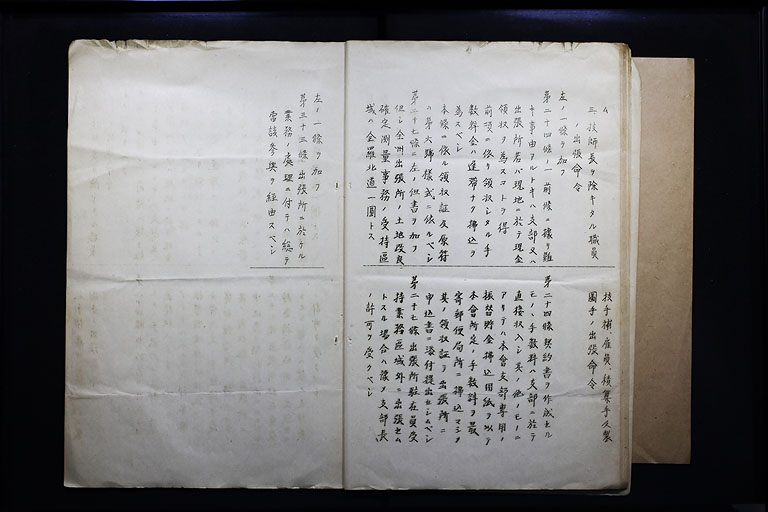 ム
三、技師長ヲ除キタル職員
ノ出張命令
左ノ一條ヲ加フ
第二十四條ノ一 前條ニ據リ難
キ事由ヲルトキハ支部又ハ
出張所若ハ現地ニ於テ現金
領収ヲ為スコトヲ得
前項ニ依リ領収シタル手
数料金ハ遅滞ナク拂込ヲ
為スベシ
本條ニ依ル領収証及原符
ハ第六號様式ニ依ルベシ
第二十七條ニ左ノ但書ヲ加フ
但シ全州出張所ノ土地改良
確定測量事務ノ受持區
域ハ全羅北道一圓トス
技手補、雇員、積算手及製
圖手ノ出張命令
第二十四條 契約書ヲ作成セル
モノノ手数料ハ支部ニ於テ
直接収入シ其ノ他ノモノニ
アリテハ本會支部専用ノ
振替貯金拂込用紙ヲ以テ
本會所定ノ手数料ヲ最
寄郵便局所ニ拂込マシメ
其ノ領収証ヲ出張所ニ
申込書ニ添付提出セシムベシ
第二十七條 出張所駐在員受
持業務區域外ニ出張セム
トスル場合ハ豫メ支部長
ノ許可ヲ受クベシ
左ノ一條ヲ加フ
第三十三條 出張所ニ於ケル
業務ノ處理ニ付テハ總テ
當該参與ヲ経由スベシ